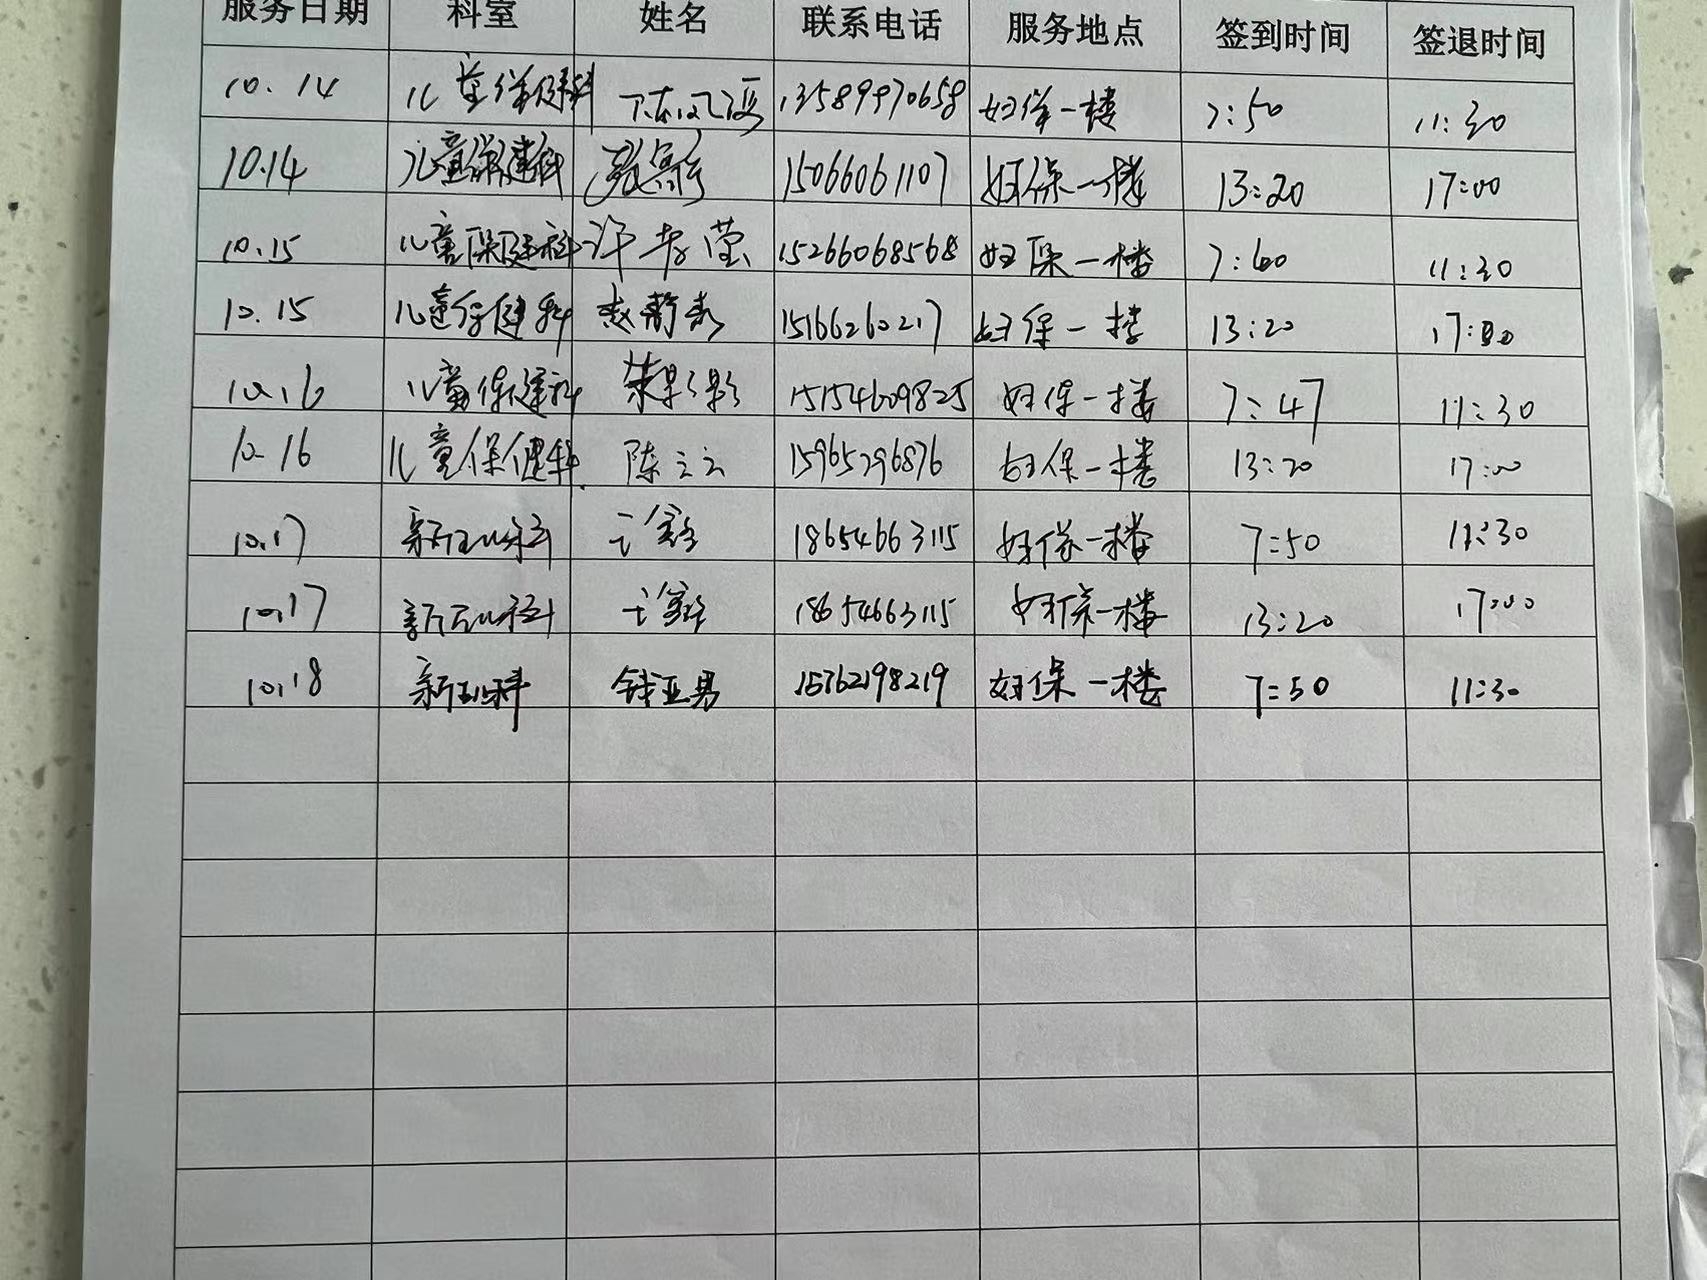 服务日期 科室 姓名 联系电话 服务地点 签到时间 签退时间
10.14 儿童保健科 13589970658 妇保一楼 7:50 11:30
10.14 儿童保健科 15066061107 妇保一楼 13:20 17:00
10.15 儿童保健科 许 莹 15266068568 妇保一楼 11:30
10.15 儿童保健科 赵 15166260217 妇保一楼 13:20 17:00
10.16 儿童保健科 15154609825 妇保一楼 7:47 11:30
10.16 儿童保健科 陈云云 15965296876 妇保一楼 13:20 17:00
10.17 新生儿科 18654663115 妇保一楼 7:50 11:30
10.17 新生儿科 18654663115 妇保一楼 13:20 17:00
10.18 新生儿科 钱亚男 15762198219 妇保一楼 7:50 11:30